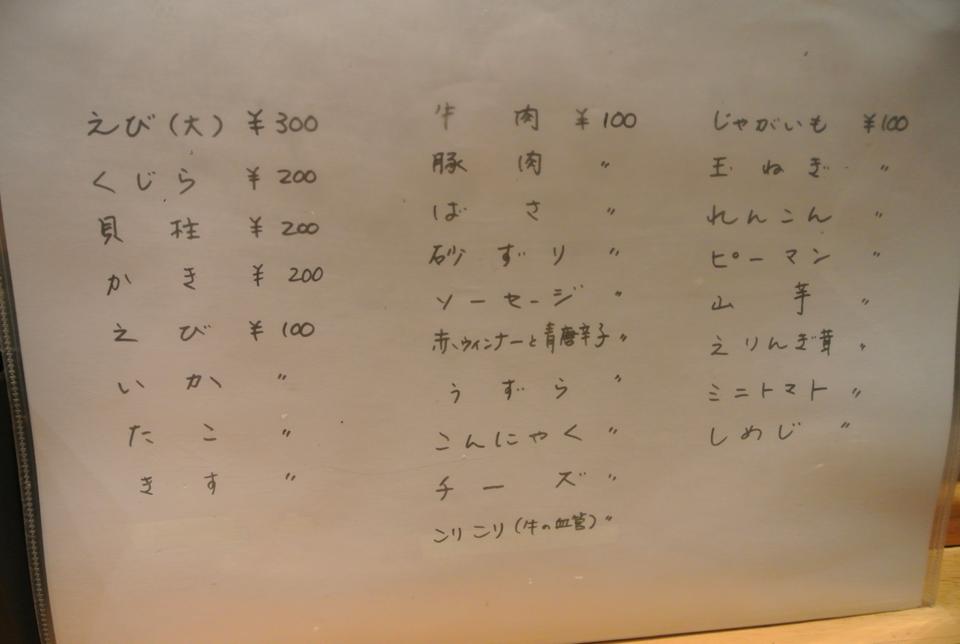 えび(大) ¥300
くじら ¥200
貝柱 ¥200
かき ¥200
えび ¥100
いか 〃
たこ 〃
きす 〃
牛肉 ¥100
豚肉 〃
ばさ 〃
砂ずり 〃
ソーセージ 〃
赤ウィンナーと青唐辛子 〃
うずら 〃
こんにゃく 〃
チーズ 〃
コリコリ(牛の血管) 〃
じゃがいも ¥100
玉ねぎ 〃
れんこん 〃
ピーマン 〃
山芋 〃
えりんぎ茸 〃
ミニトマト 〃
しめじ 〃